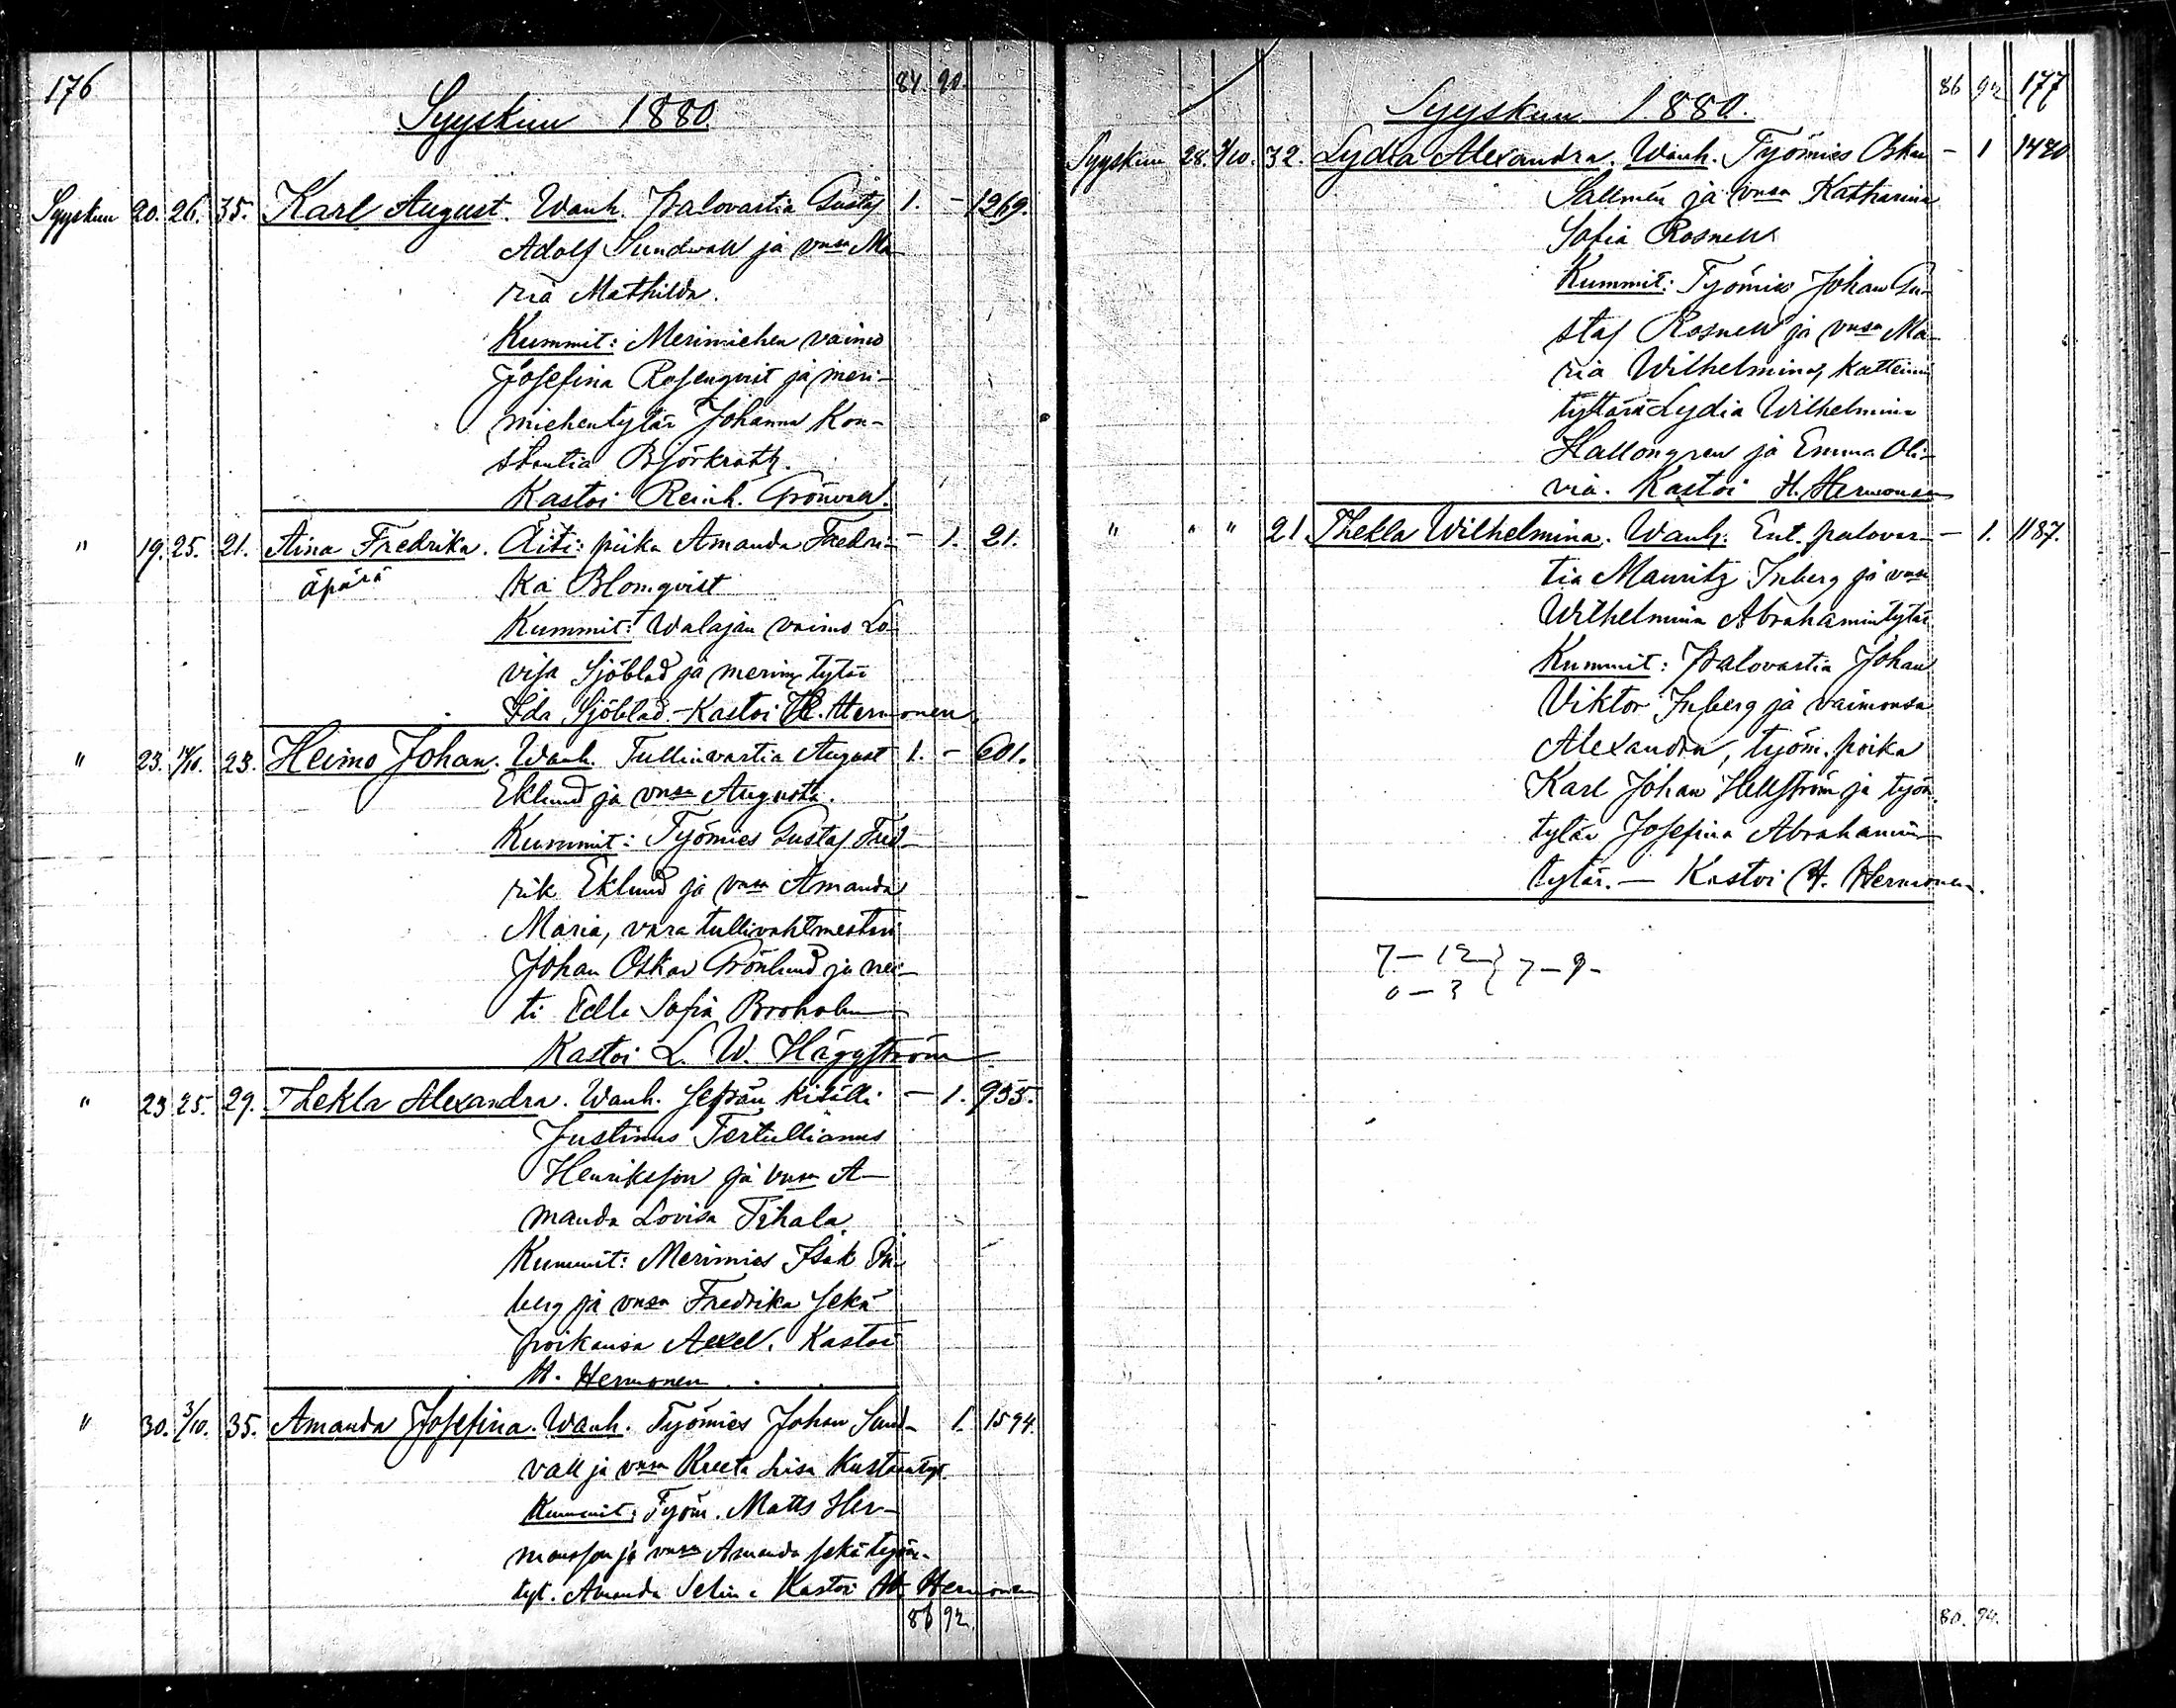 176
84. 90.
Syyskuu 1880.
Syyskuu 20. 26. 35. Karl August. Wanh. Palovartia Gustaf 1. - 1269.
Adolf Sundwall ja vnsa Ma-
ria Mathilda.
Kummit: Merimiehen vaimo
Josefina Rosenqvist ja meri-
miehentytär Johanna Kon-
stantia Björkrath.
Kastoi Reinh. Grönvall.
" 19. 25. 21. Aina Fredrika. Äiti: piika Amanda Fredri- - 1. 21.
äpärä ka Blomqvist
Kummit: Walajan vaimo Lo-
visa Sjöblad ja merim. tytär
Ida Sjöblad. - Kastoi H. Hermonen
" 23. 14/10. 23. Heimo Johan. Wanh. Tullivartia August 1. - 601.
Eklund ja vnsa Augusta.
Kummit: Työmies Gustaf Fred-
rik Eklund ja vnsa Amanda
Maria, vara tullivahtmestari
Johan Oskar Grönlund ja nei-
ti Edla Sofia Broholm
Kastoi L. W. Häggström
" 23 25. 29. Thekla Alexandra. Wanh. Sepän kisälli - 1. 955.
Justinus Tertullianus
Henriksson ja vnsa A-
manda Lovisa Tihala.
Kummit: Merimies Isak In-
berg ja vnsa Fredrika sekä
poikansa Axel. Kastoi
H. Hermonen
" 30. 3/10. 35. Amanda Josefina. Wanh. Työmies Johan Sund- 1. 1594.
vall ja vnsa Kreeta Liisa Kustaantyt.
Kummit: Työm. Matts Her-
mansson ja vnsa Amanda sekä työm.
tyt. Amanda Selin. Kastoi H. Hermonen
86 92.
86 92 177
Syyskuu 1880.
Syyskuu 28. 3/10. 32. Lydia Alexandra. Wanh. Työmies Oskar - 1 1420
Sallmén ja vnsa Katharina
Sofia Rosnell
Kummit: Työmies Johan Gu-
staf Rosnell ja vnsa Ma-
ria Wilhelmina,
tyttäret Lydia Wilhelmina
Hallongren ja Emma Oli-
via. Kastoi H. Hermonen
" " " 21 Thekla Wilhelmina. Wanh. Ent. palovar- - 1. 1187.
tia Mauritz Inberg ja vnsa
Wilhelmina Abrahamintytär
Kummit: Palovartia Johan
Viktor Inberg ja vaimonsa
Alexandra, työm. poika
Karl Johan Hellström ja työm.
tytär Josefina Abrahamin-
tytär. - Kastoi H. Hermonen.
7 - 12 } 7 - 9 -
0 - 3
86. 94.